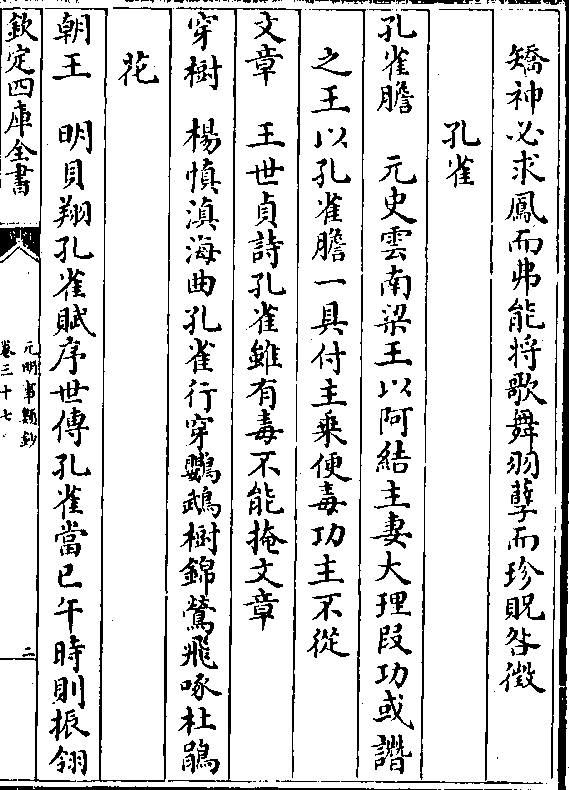 矯神必求鳳而弗能將歌舞羽孽而珍貺咎徵
孔雀
孔雀膽　元史雲南梁王以阿結主妻大理段功或譖
之王以孔雀膽一具付主乗便毒功主不從
文章　王世貞詩孔雀雖有毒不能掩文章
穿樹　楊慎滇海曲孔雀行穿鸚鵡樹錦鶯飛啄杜鵑
花
朝王　明貝翔孔雀賦序世傳孔雀當巳午時則振翎
欽定四庫全書
元明事類鈔
卷三十七
二